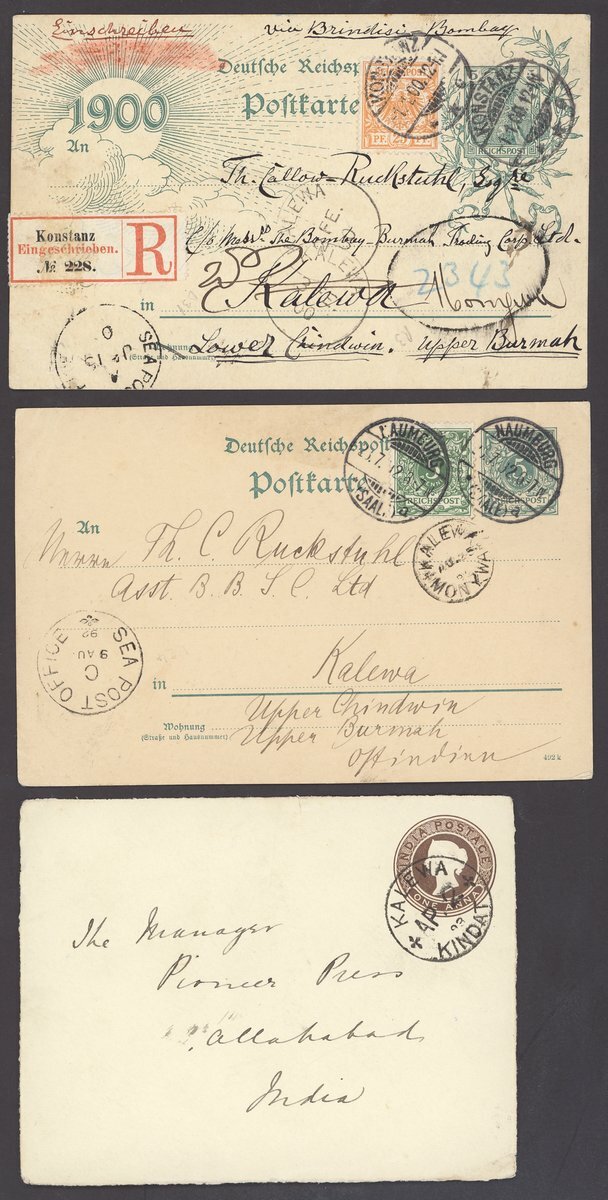 Einschreiben
via Brindisi - Bombay
Deutsche Reichspost
Postkarte
1900
An
25
PF.
KONSTANZ
KONSTANZ
REICHSPOST
Th. Callow-Ruckstuhl, Esqre
Konstanz
Eingeschrieben.
№ 228.
R
c/o Messrs The Bombay-Burmah Trading Corp. Ltd.
KALEWA
2343
in
Kalewa
Lower Chindwin, Upper Burmah
Wohnung
(Straße und Hausnummer)
SEA POS
Deutsche Reichspost
Postkarte
5
REICHSPOST
5
NAUMBURG
(SAALE)
NAUMBURG
(SAALE)
An
Herrn Th. C Ruckstuhl
Asst. B. B. T. C. Ltd
KALEWA
MONYWA
SEA POST OFFICE
C
9 AU
92
in
Kalewa
Upper Chindwin
Upper Burmah
Ostindien
Wohnung
(Straße und Hausnummer)
492 k
INDIA POSTAGE
ONE ANNA
KALEWA
AP
KINDAT
The Manager
Pioneer Press
Allahabad
India